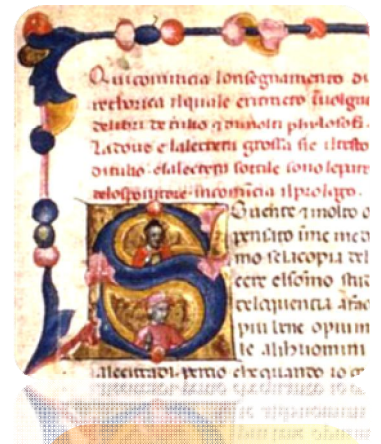 Qui comincia lonsegnamento di
rethorica ilquale
delibri de tulio & dimolti phylosofi.
Ladoue e lalectera grossa sie iltesto
ditulio. elalectera sottile sono lepare
delosponitore incomincia ilprolago.
Souente & molto o
pensato inme med
mo selacopia del
cere elsomo stu
piu bene o piu m
le alihuomini
alecittadi. percio che quando io c